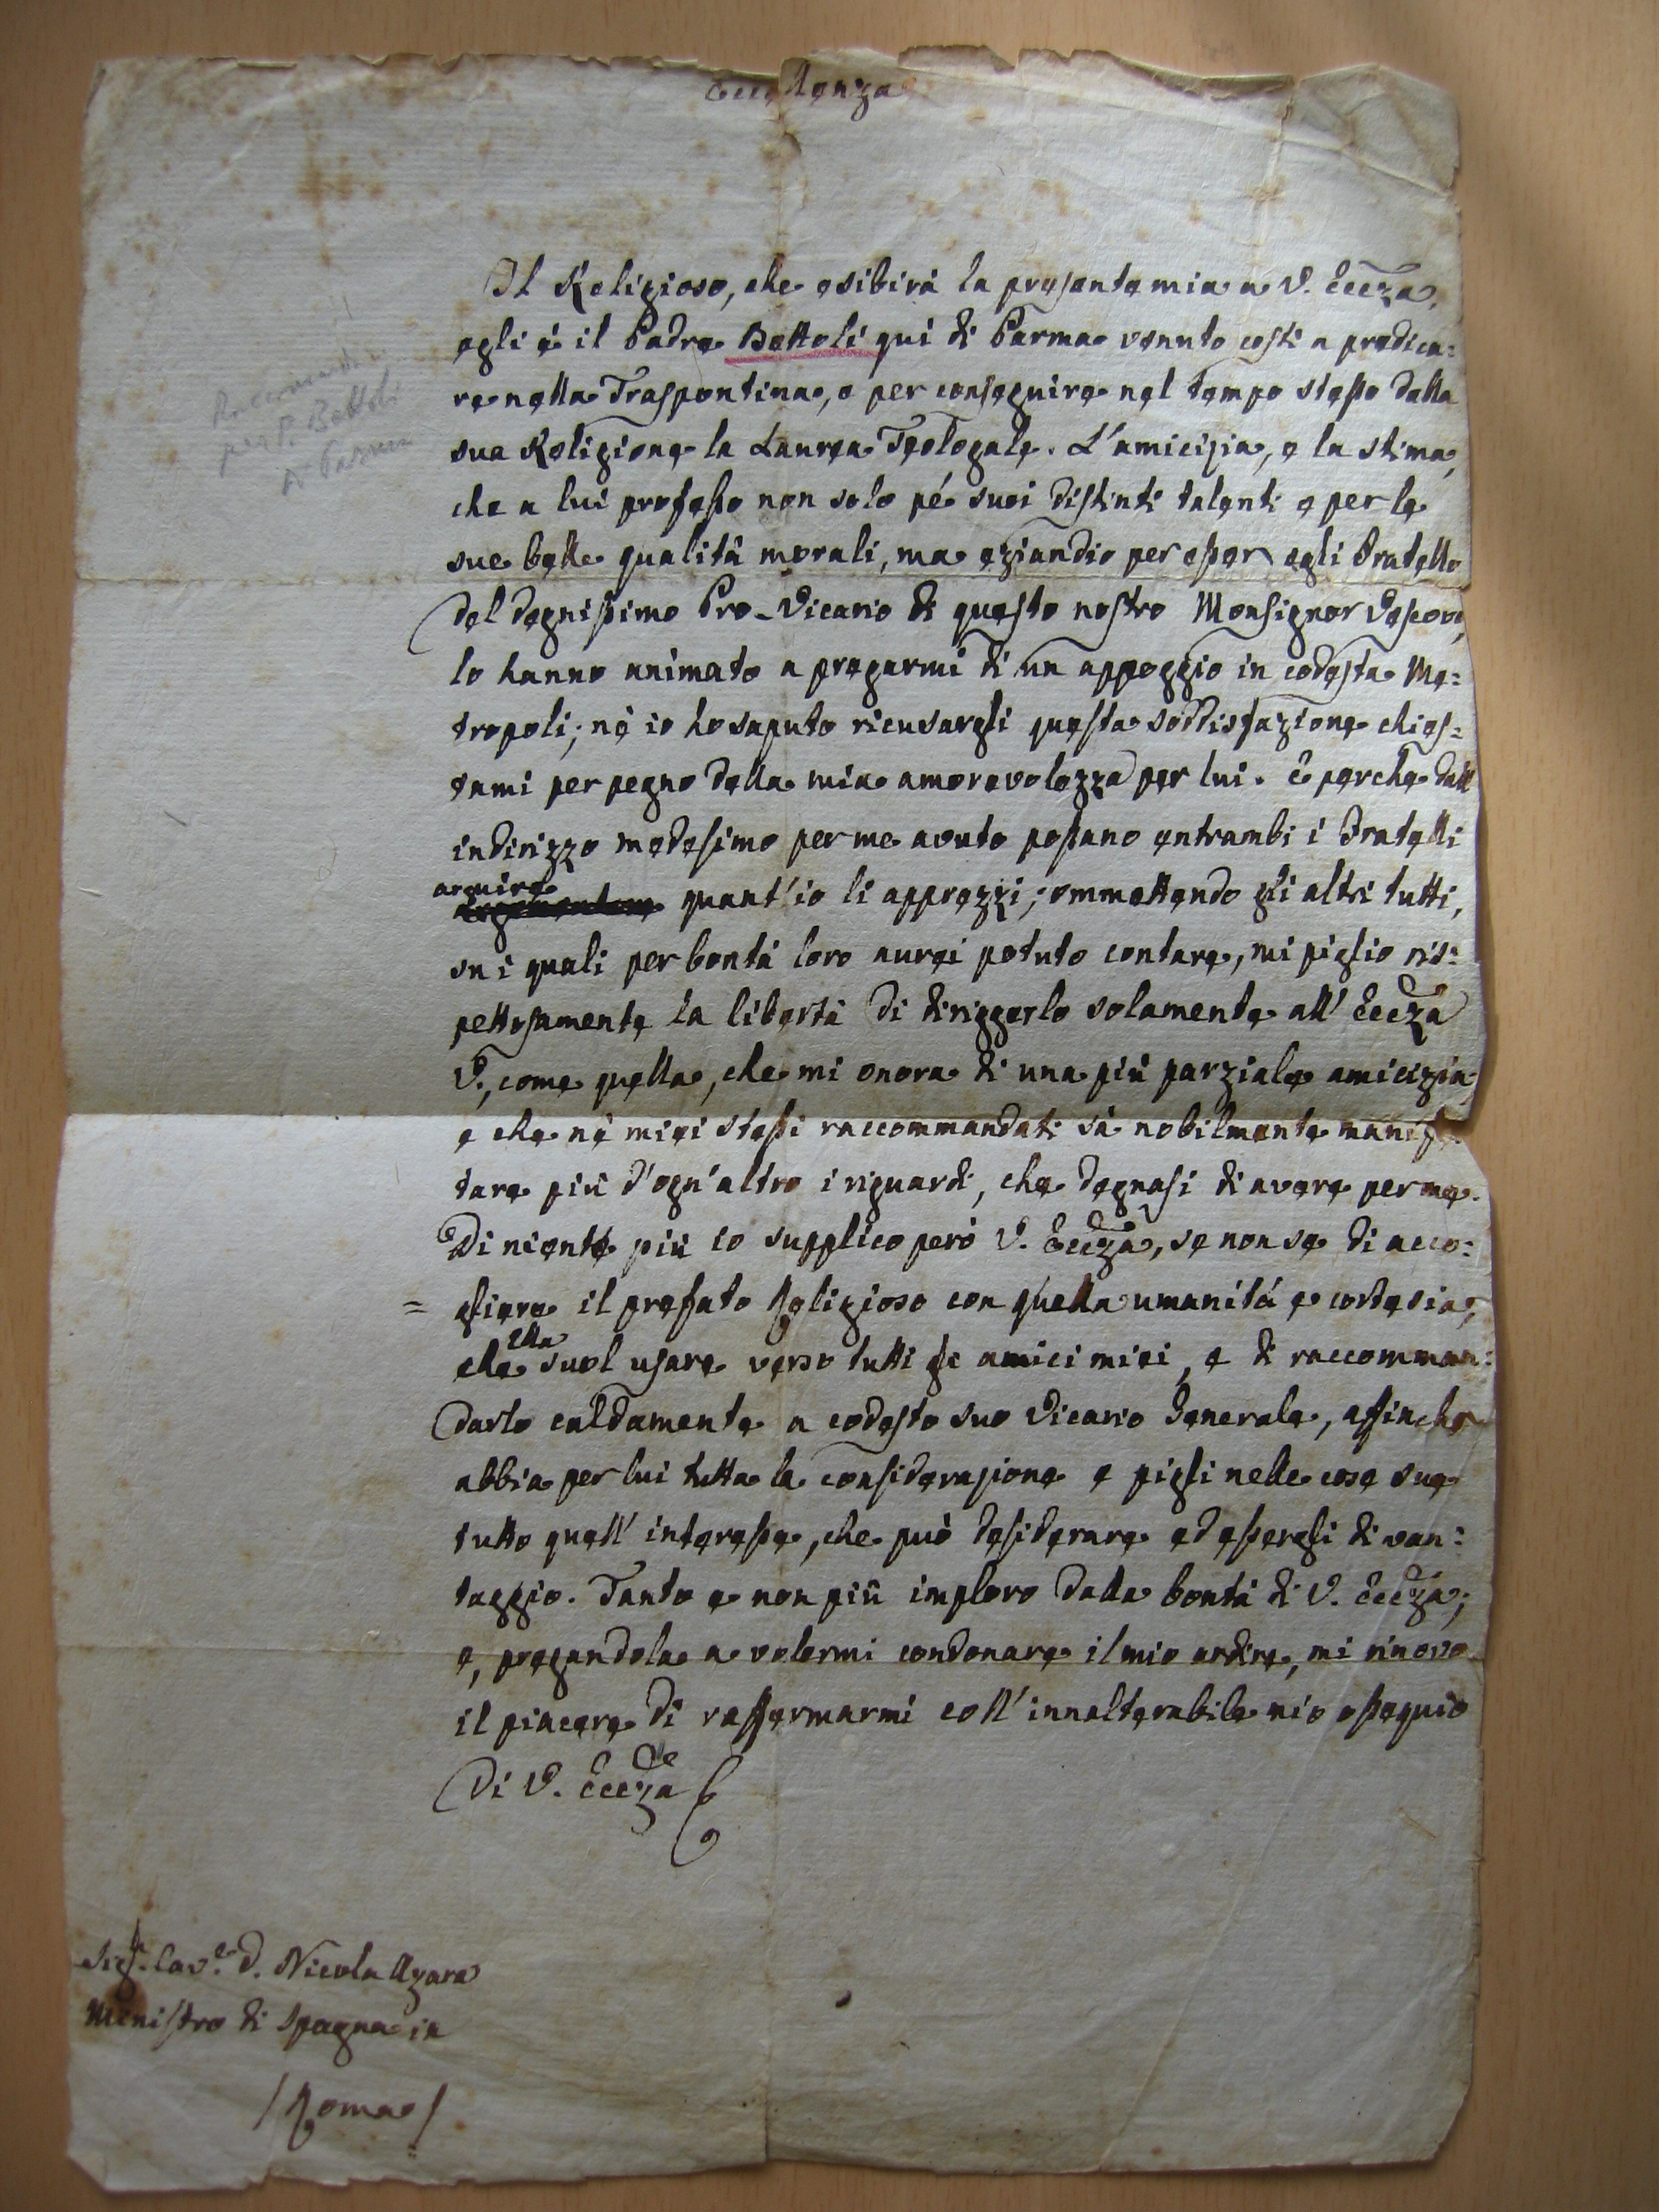 Eccellenza
Il Religioso, che esibirà la presente mia a V. Eccza,
egli è il Padre Bettoli quì di Parma venuto costì a predica=
re nella Traspontina, e per conseguire nel tempo stesso dalla
sua Religione la Laurea Teologale. L'amicizia, e la stima,
che a lui professo non solo pé suoi distinti talenti e per le
sue belle qualità morali, ma eziandio per esser egli Fratello
del degnissimo Pro-Vicario di questo nostro Monsignor Vescovo,
lo hanno animato a pregarmi di un appoggio in codesta Me=
tropoli; nè io ho saputo ricusargli questa soddisfazione chies=
tami per pegno della mia amorevolezza per lui. E perche dall
indirizzo medesimo per me avuto possano entrambi i Fratelli
arguire quant'io li apprezzi; ommettendo gli altri tutti,
su i quali per bontà loro avrei potuto contare, mi piglio ris=
pettosamente la libertà di diriggerlo solamente all' Eccza
V., come quella, che mi onora di una più parziale amicizia,
e che nè miei stessi raccommandati sà nobilmente manifes
tare più d'ogn'altro i riguardi, che degnasi di avere per me.
Di niente più io supplico però V. Eccza, se non se di acco=
= gliere il prefato Religioso con quella umanità e cortesia,
che ella suol usare verso tutti gli amici miei, e di raccomman=
darlo caldamente a codesto suo Vicario Generale, affinche
abbia per lui tutta la considerazione e pigli nelle cose sue
tutto quell' interesse, che può desiderare ed essergli di van=
taggio. Tanto e non più imploro dalla bontà di V. Eccza;
e, pregandola a volermi condonare il mio ardire, mi rinovo
il piacere di raffermarmi coll' innalterabile mio ossequio
Di V. Eccza
Raccomanda
per P. Bettoli
di Parma
Sigr. Cave. D. Nicola Azara
Ministro di Spagna in
/Roma/